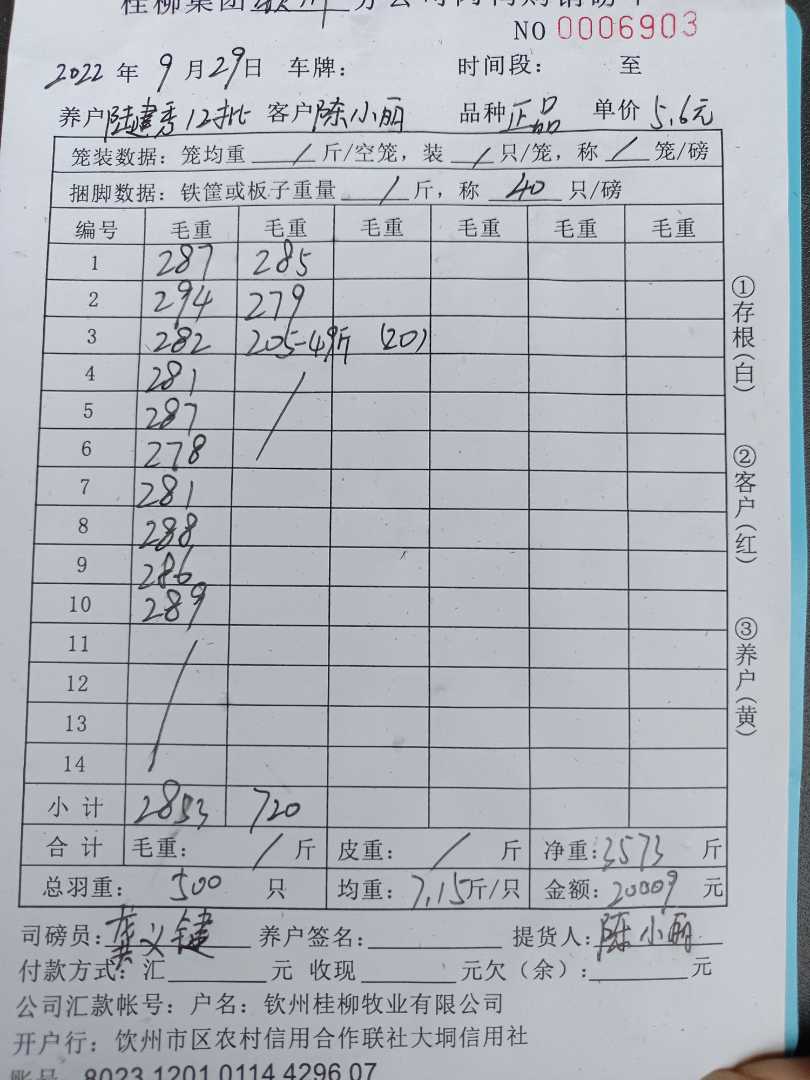 桂柳集团钦州分公司肉鸭购销磅单
NO 0006903
2022 年 9 月 29 日 车牌: 时间段: 至
养户 陆建秀12批 客户 陈小丽 品种 正品 单价 5.6元
笼装数据: 笼均重 / 斤/空笼, 装 / 只/笼, 称 / 笼/磅
捆脚数据: 铁筐或板子重量 / 斤, 称 40 只/磅
编号 毛重 毛重 毛重 毛重 毛重 毛重
1 287 285
2 294 279
3 282 205-49斤 (20)
4 281 /
5 287
6 278
7 281
8 288
9 286
10 289
11 /
12
13
14
小计 2853 720
合计 毛重: / 斤 皮重: / 斤 净重: 3573 斤
总羽重: 500 只 均重: 7.15 斤/只 金额: 20009 元
司磅员: 龚义键 养户签名: 提货人: 陈小丽
付款方式: 汇 元 收现 元欠(余): 元
公司汇款帐号: 户名: 钦州桂柳牧业有限公司
开户行: 钦州市区农村信用合作联社大垌信用社
账号 8023 1201 0114 4296 07
①存根(白)
②客户(红)
③养户(黄)